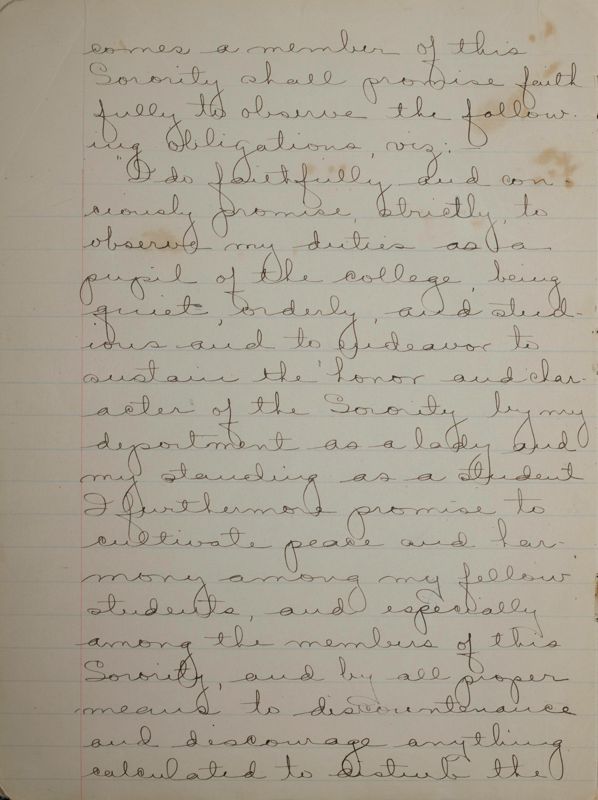 comes a member of this
Sorority shall promise faith
fully to observe the follow-
ing obligations, viz:
"I do faithfully and con-
ciously promise, strictly, to
observe my duties as a
pupil of the college, being
quiet, orderly, and stud-
ious and to endeavor to
sustain the honor and char-
acter of the Sorority by my
deportment as a lady and
my standing as a student
I furthermore promise to
cultivate peace and har-
mony among my fellow
students, and especially
among the members of this
Sorority, and by all proper
means to discountenance
and discourage anything
calculated to disturb the